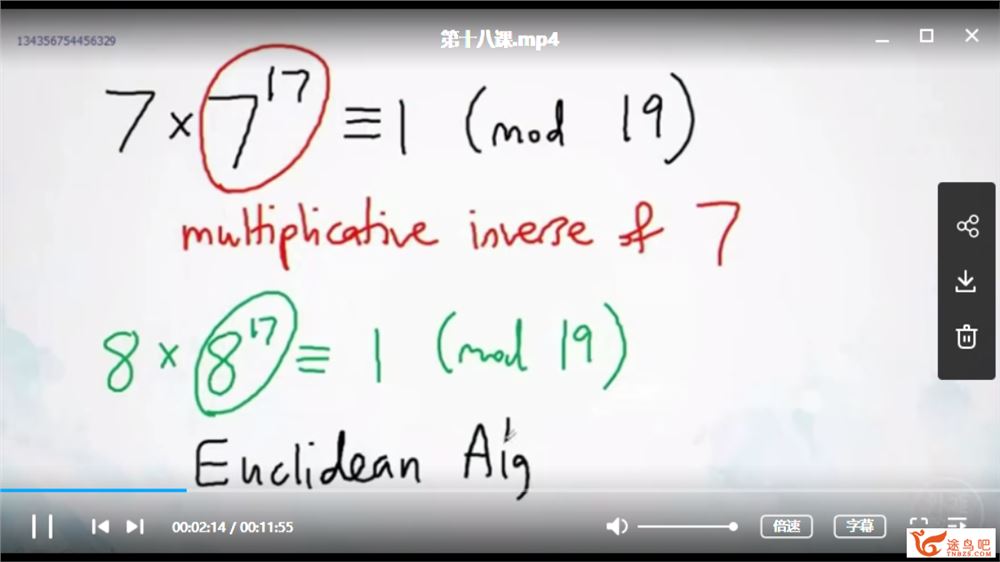 134356754456329
第十八课.mp4
7 × 7^17 ≡ 1 (mod 19)
multiplicative inverse of 7
8 × 8^17 ≡ 1 (mod 19)
Euclidean Alg
00:02:14 / 00:11:55
倍速
字幕
途鸟吧
TNBZS.COM